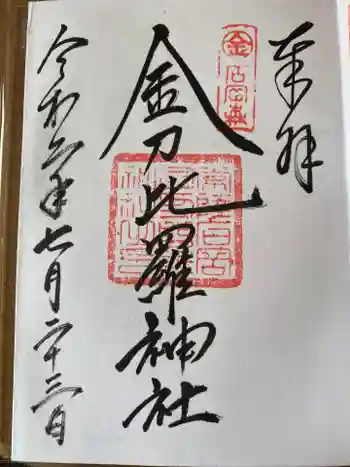 奉拝
金刀比羅神社
令和六年七月二十三日